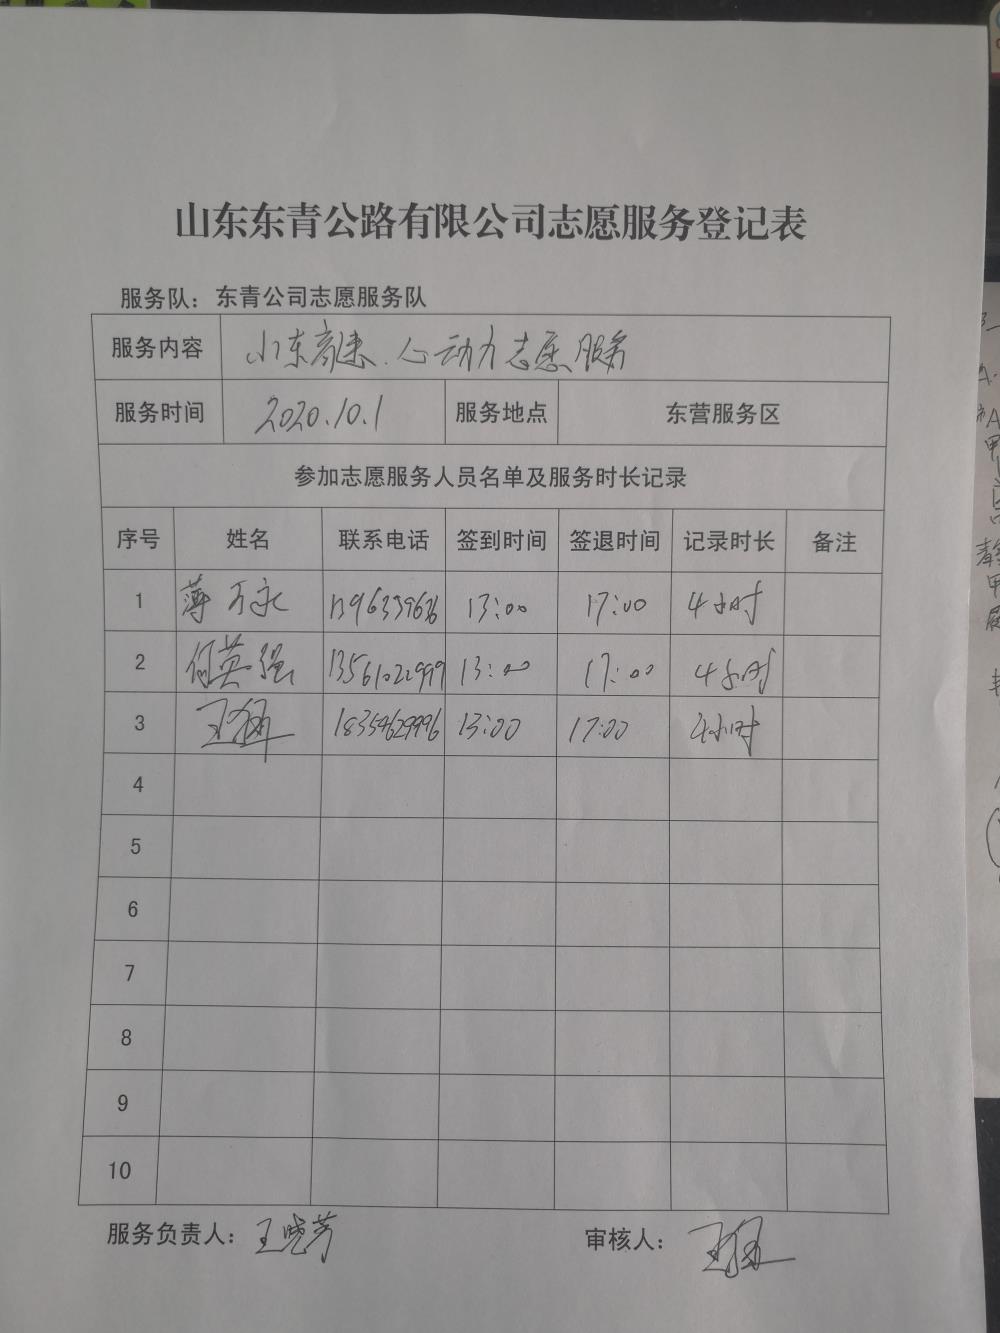 山东东青公路有限公司志愿服务登记表
服务队：东青公司志愿服务队
服务内容 山东高速.心动力志愿服务
服务时间 2020.10.1 服务地点 东营服务区
参加志愿服务人员名单及服务时长记录
序号 姓名 联系电话 签到时间 签退时间 记录时长 备注
1 薄万永 13:00 17:00 4小时
2 何英强 13561022999 13:00 17:00 4小时
3 18354629996 13:00 17:00 4小时
4
5
6
7
8
9
10
服务负责人：王晓芳 审核人：